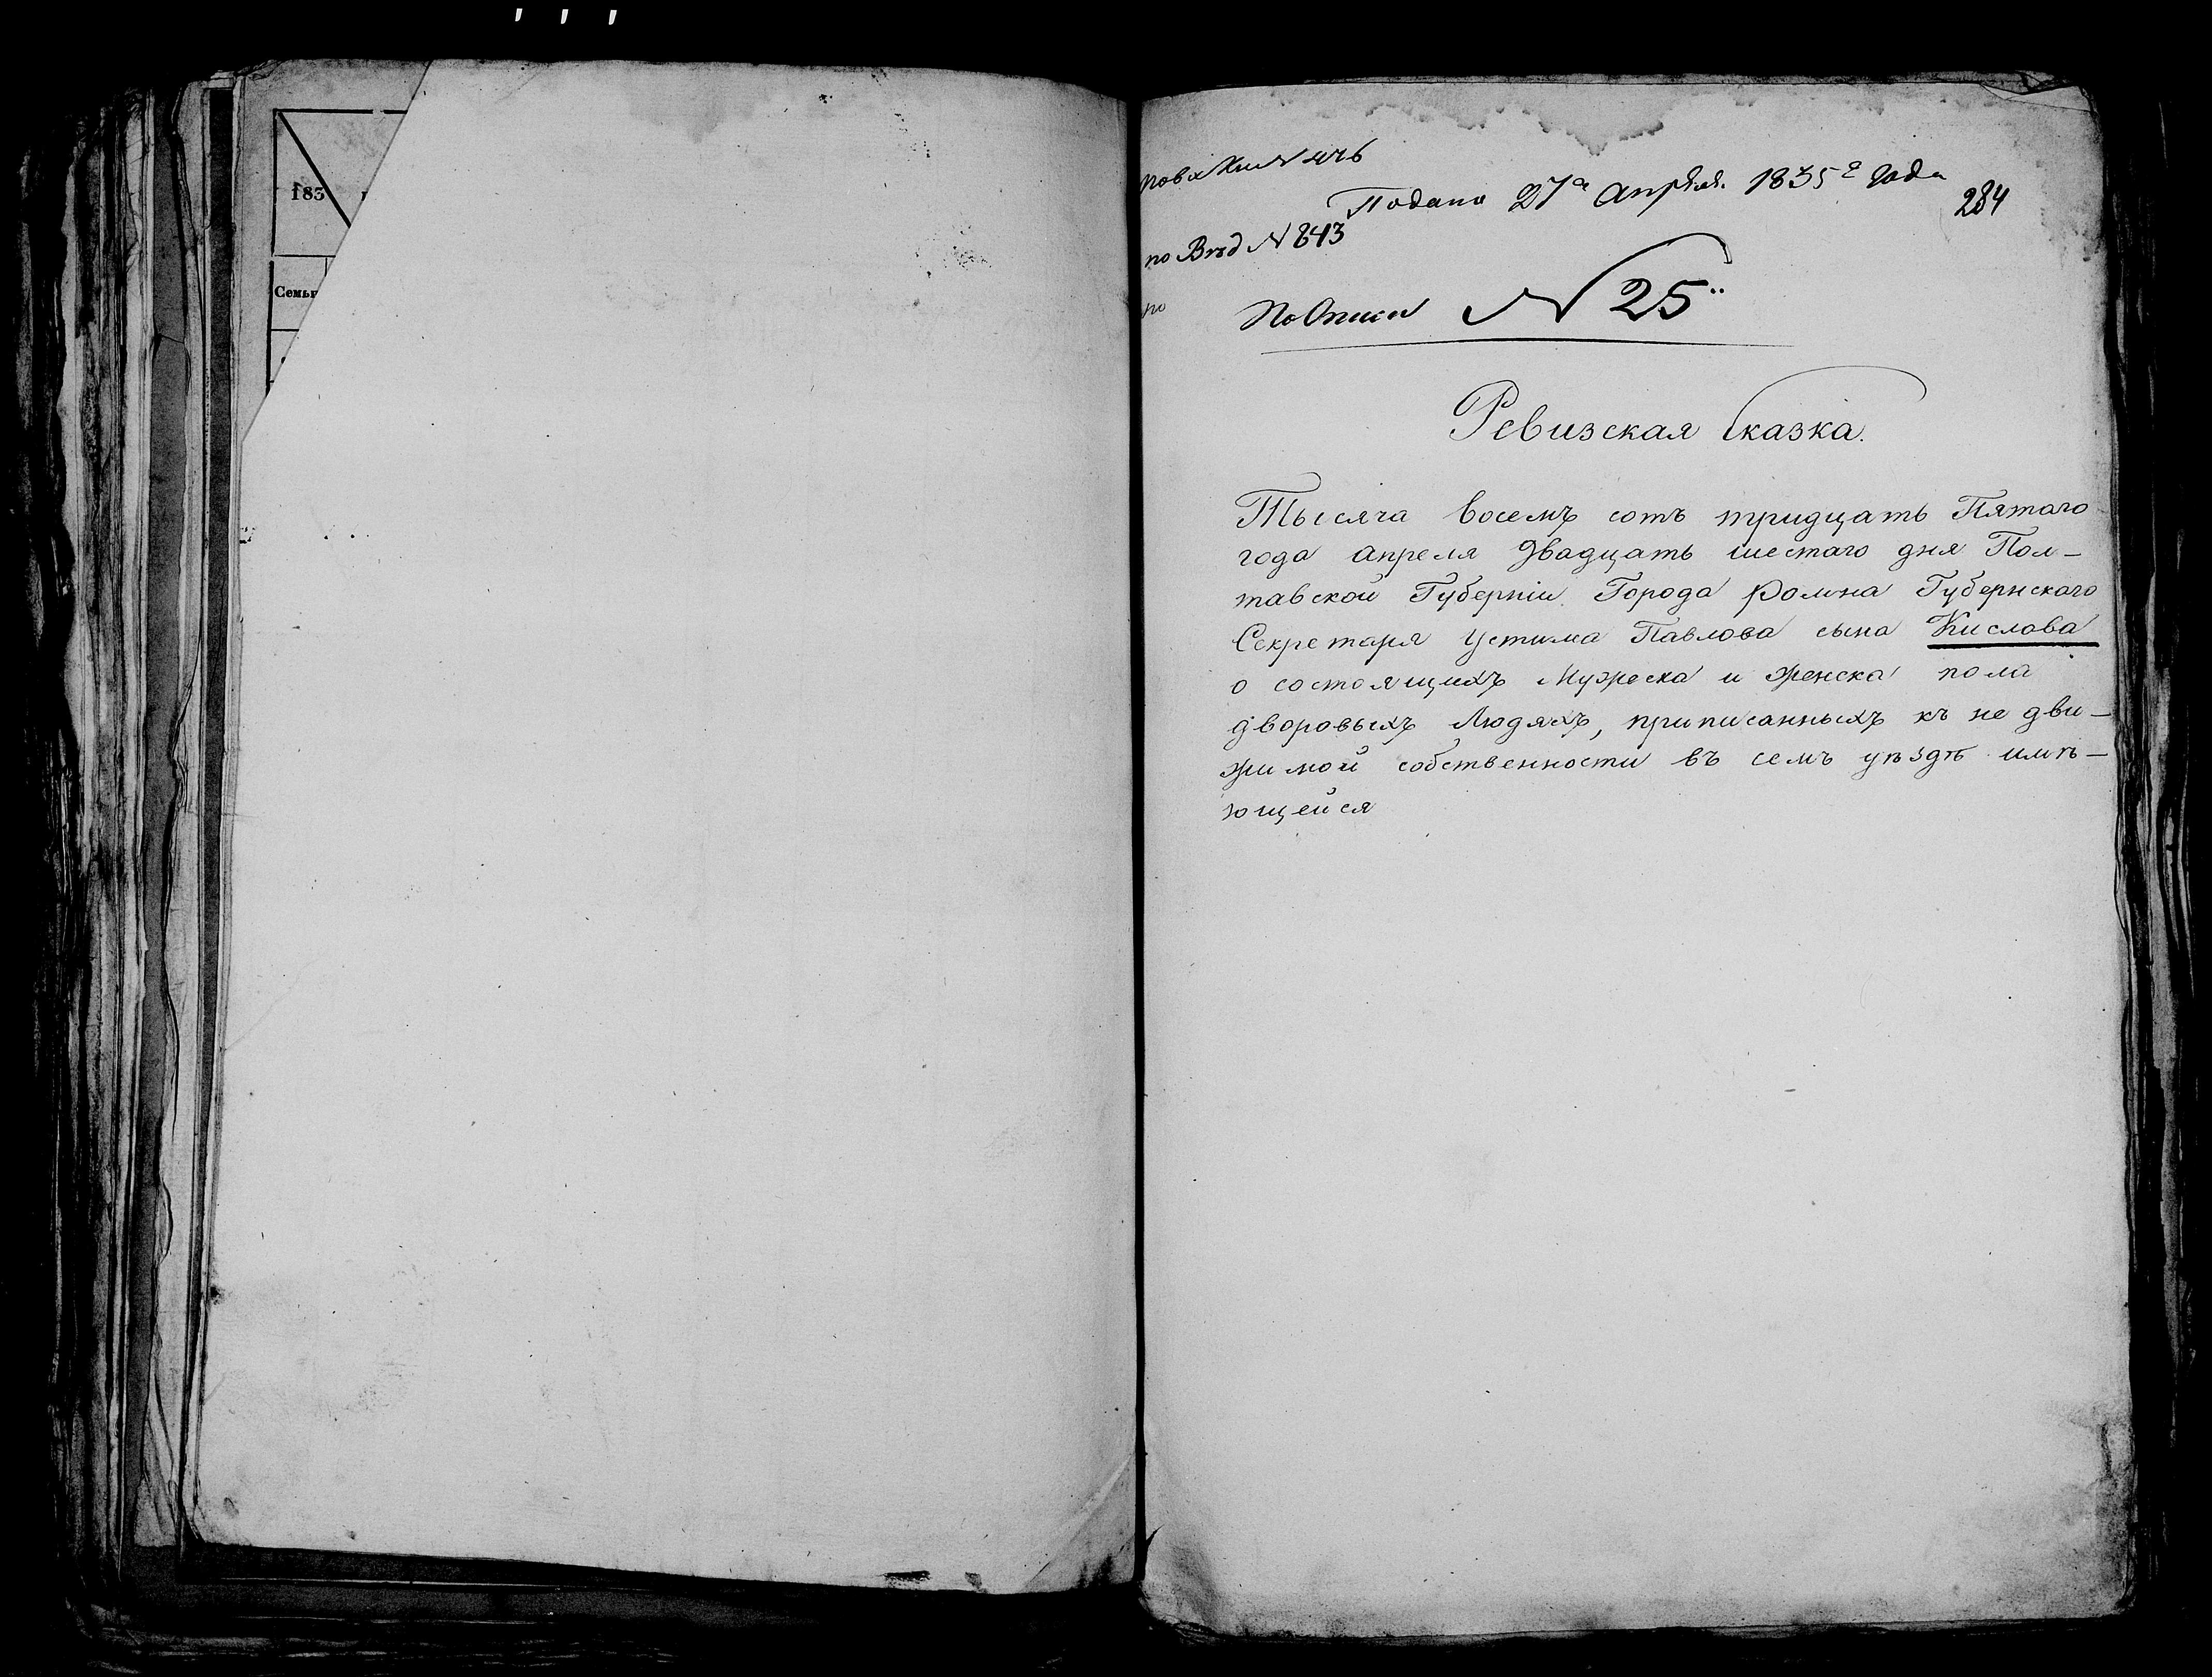 183
Семьи
Подана 27го апреля 1835го года
284
по № 843
по
По Описи № 25
Ревизская Сказка.
Тысяча восемъ сотъ тридцать Пятаго
года апреля двадцать шестаго дня Пол-
тавской Губерніи Города Ромна Губернскаго
Секретаря Устима Павлова сына Кислова
о состоящихъ Мужеска и женска пола
дворовыхъ Людяхъ, приписанныхъ къ не дви-
жимой собственности въ семъ уѣздѣ имѣ-
ющейся